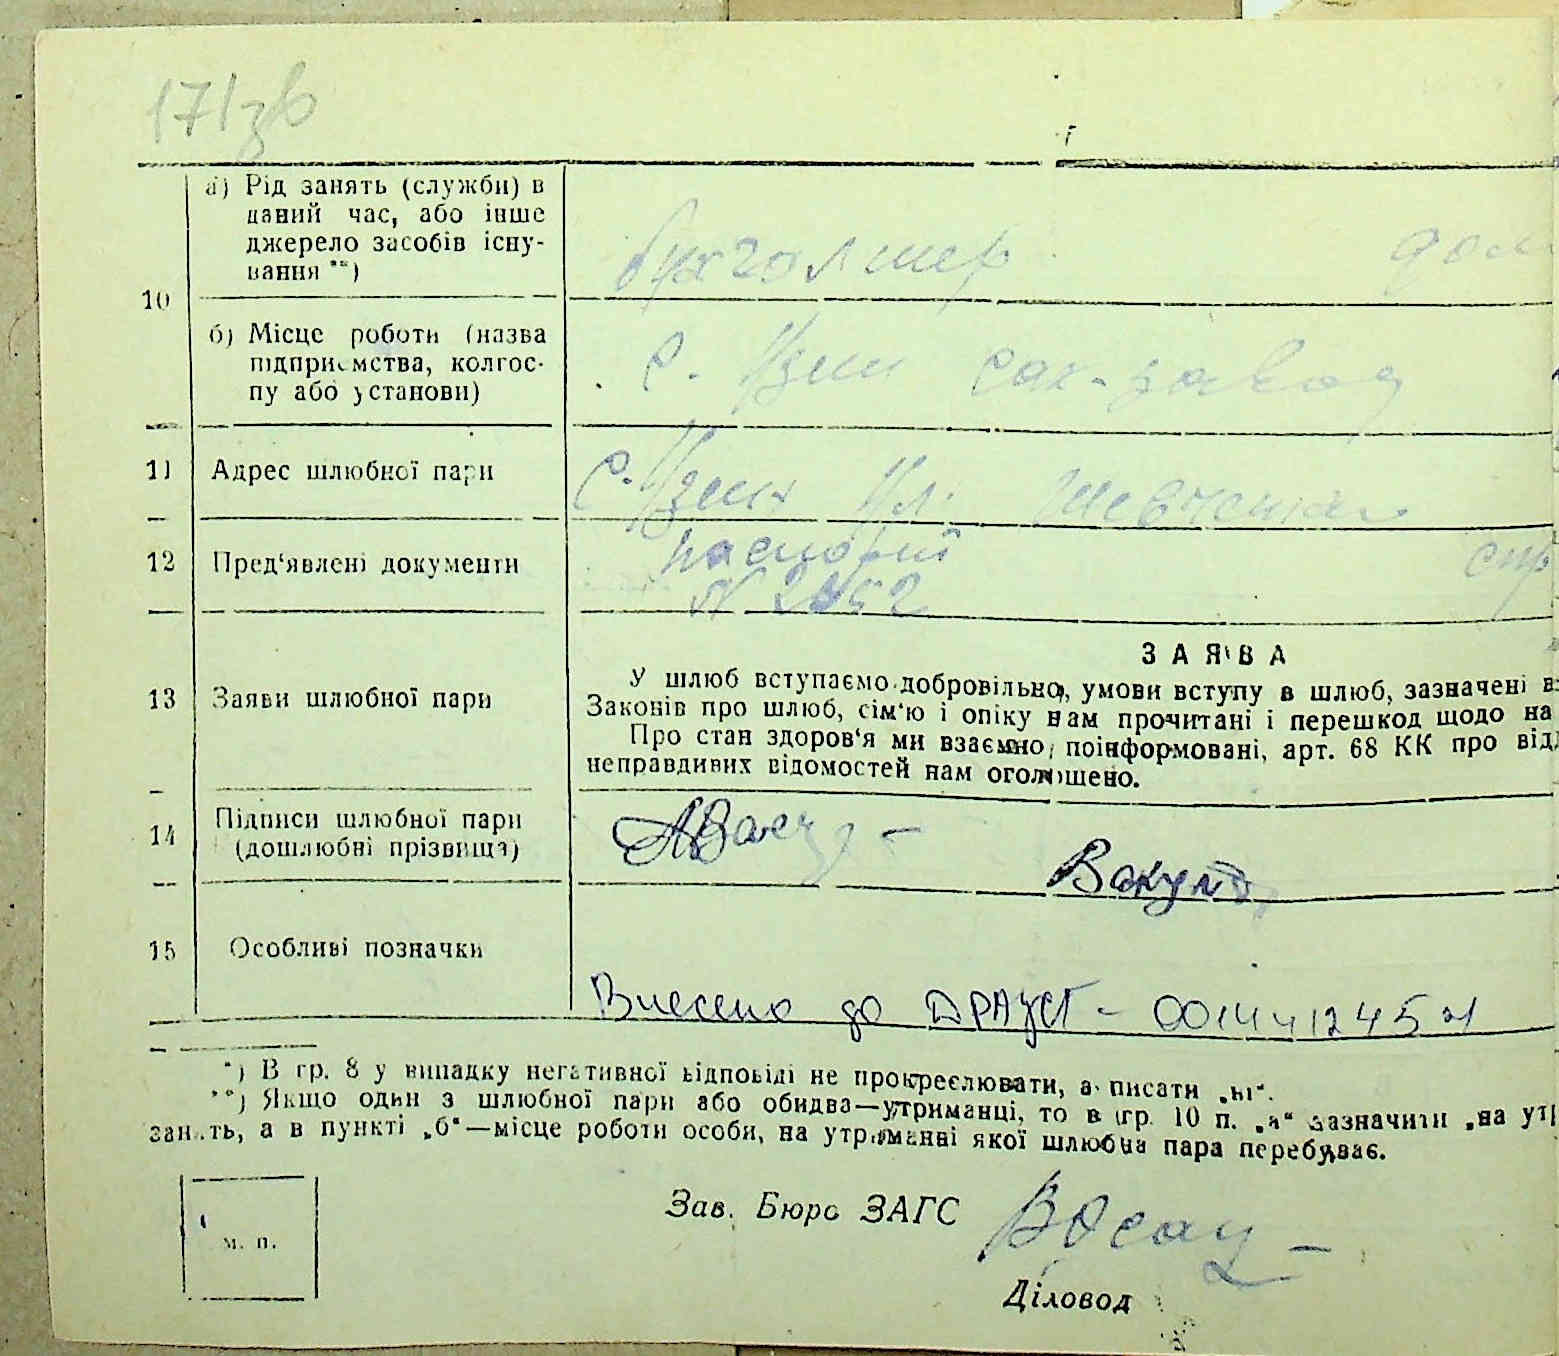 171зв
а) Рід занять (служби) в
даний час, або інше
джерело засобів існу-
вання **)
бухгалтер
10
б) Місце роботи (назва
підприємства, колгос-
пу або установи)
с. Узин сах-завод
11 Адрес шлюбної пари
с. Узин ул. Шевченка
12 Пред'явлені документи
паспорт
№ 2452
З А Я В А
13 Заяви шлюбної пари
У шлюб вступаємо добровільно, умови вступу в шлюб, зазначені в
Законів про шлюб, сім'ю і опіку нам прочитані і перешкод щодо на
Про стан здоров'я ми взаємно поінформовані, арт. 68 КК про від
неправдивих відомостей нам оголошено.
14 Підписи шлюбної пари
(дошлюбні прізвища)
Вакул
15 Особливі позначки
Внесено до ДРАЦСГ -
*) В гр. 8 у випадку негативної відповіді не прокреслювати, а писати „ні“.
**) Якщо один з шлюбної пари або обидва—утриманці, то в гр. 10 п. „а“ зазначити „на ут
занять, а в пункті „б“—місце роботи особи, на утриманні якої шлюбна пара перебуває.
Зав. Бюро ЗАГС
м. п.
Діловод